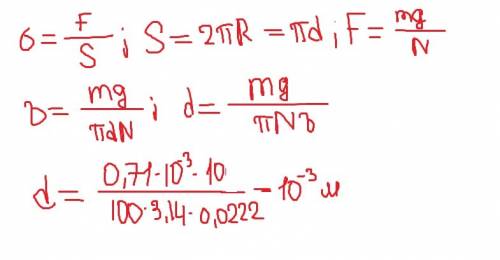 σ = F/S ; S = 2πR = πd ; F = mg/N
σ = mg/πdN ; d = mg/πNσ
d = 0,71·10³·10/100·3,14·0,0222 - 10⁻³ м